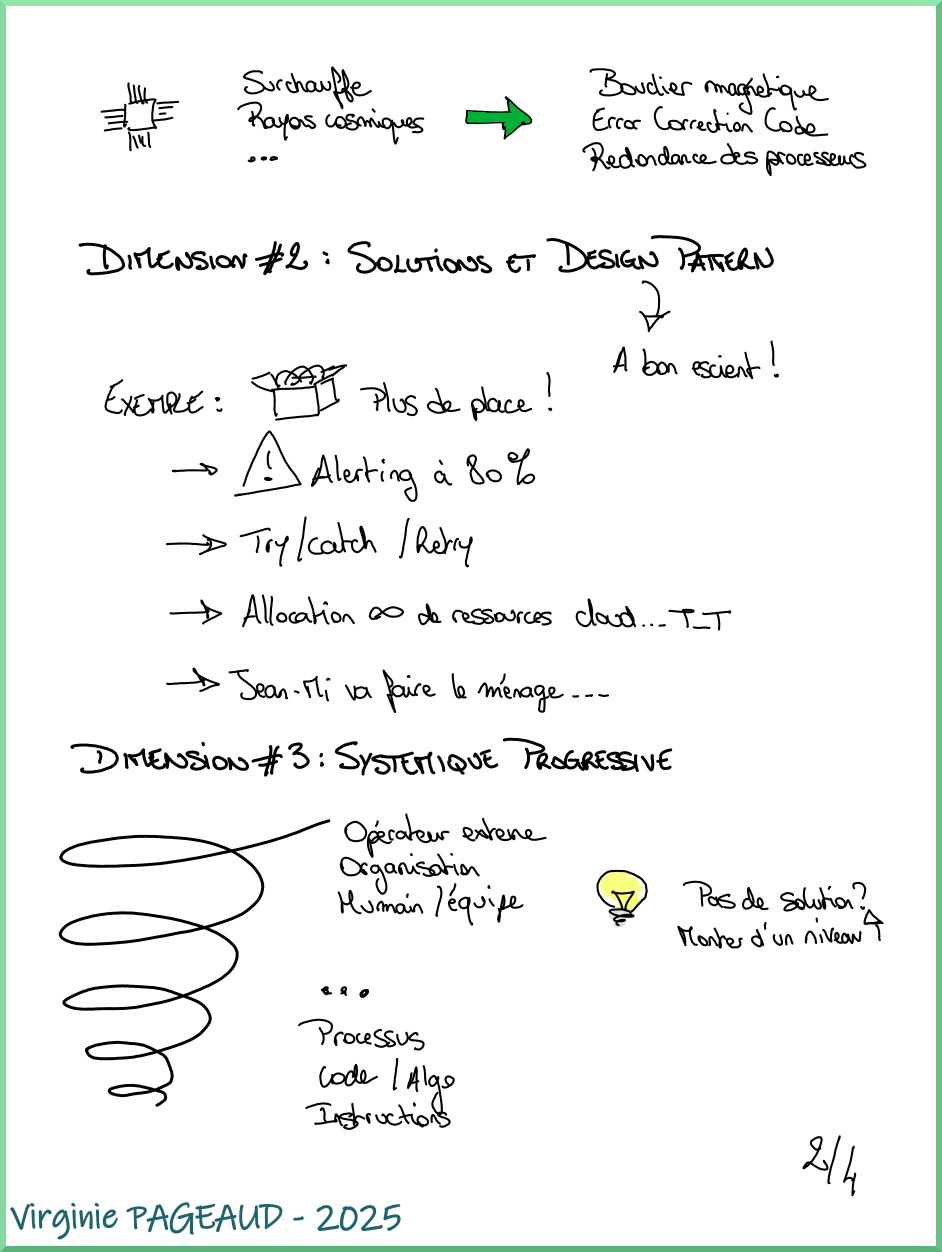 Surchauffe
Rayons cosmiques
...
Bouclier magnétique
Error Correction Code
Redondance des processeurs
DIMENSION #2 : SOLUTIONS ET DESIGN PATTERN
A bon escient !
EXEMPLE :
Plus de place !
! Alerting à 80%
Try/catch /Retry
Allocation ∞ de ressources cloud... T_T
Jean-Mi va faire le ménage...
DIMENSION #3 : SYSTEMIQUE PROGRESSIVE
Opérateur externe
Organisation
Humain /équipe
Pas de solution?
Monter d'un niveau
...
Processus
Code / Algo
Instructions
2/4
Virginie PAGEAUD - 2025